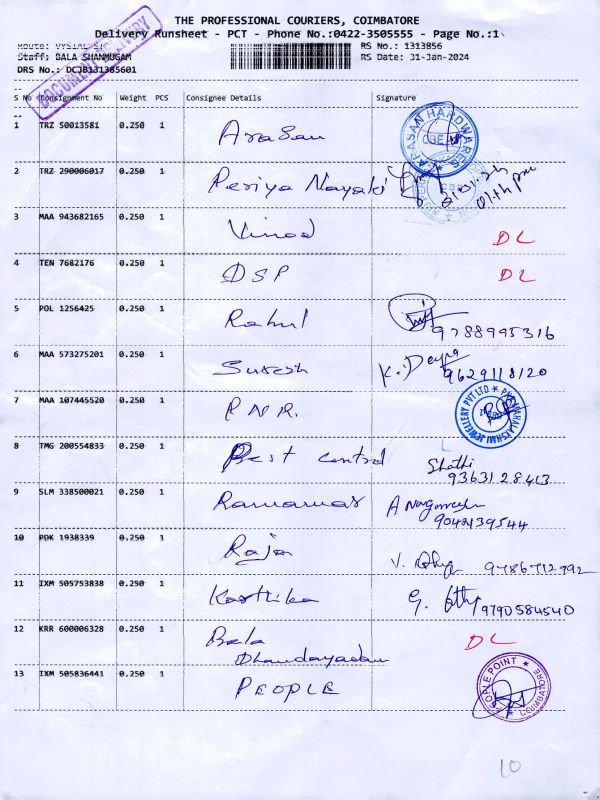 THE PROFESSIONAL COURIERS, COIMBATORE
Delivery Runsheet - PCT - Phone No.:0422-3505555 - Page No.:1
Route: VYSIAL
RS No.: 1313856
Staff: BALA SHANMUGAM
RS Date: 31-Jan-2024
DRS No.: DCJB131385601
S No Consignment No Weight PCS Consignee Details Signature
1 TRZ 50013581 0.250 1 Arasan
ARASAN HARDWARES
CBE
2 TRZ 290006017 0.250 1 Periya Nayaki
3 MAA 943682165 0.250 1 Vinod DL
4 TEN 7682176 0.250 1 DSP DL
5 POL 1256425 0.250 1 Rahul 9788995316
6 MAA 573275201 0.250 1 Suresh K. Deepa
9629118120
7 MAA 107445520 0.250 1 P N R.
MAHALAKSHMI JEWELLERY PVT LTD
8 TMG 200554833 0.250 1 Best control Shathi
9363128413
9 SLM 338500021 0.250 1 Ramamas A Nagomesh
9042139544
10 PDK 1938339 0.250 1 Raja V. 9786712992
11 IXM 505793838 0.250 1 Karthika G. 9790584540
12 KRR 600006328 0.250 1 Bala DL
Dhandayadam
13 IXM 505836441 0.250 1 PEOPLE
PEOPLE POINT
COIMBATORE
10